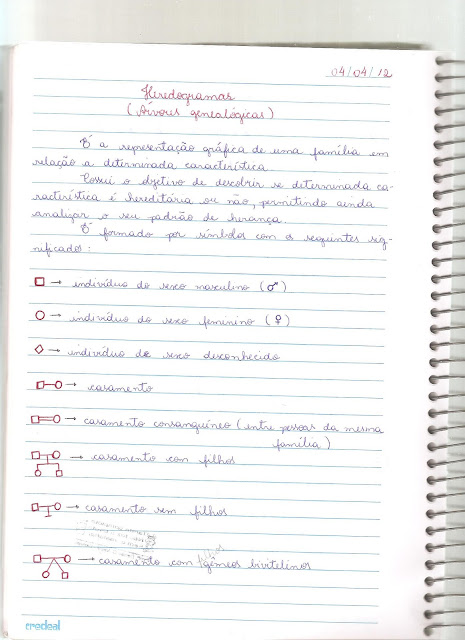 04/04/12
Heredogramas
(Árvores genealógicas)
É a representação gráfica de uma família em
relação a determinada característica.
Possui o objetivo de descobrir se determinada ca-
racterística é hereditária ou não, permitindo ainda
analizar o seu padrão de herança.
É formado por símbolos com os seguintes sig-
nificados:
→ indivíduo do sexo masculino (♂)
→ indivíduo do sexo feminino (♀)
→ indivíduo de sexo desconhecido
→ casamento
→ casamento consanguíneo (entre pessoas da mesma
família)
→ casamento com filhos
→ casamento sem filhos
→ casamento com gêmeos bivitelinos
credeal